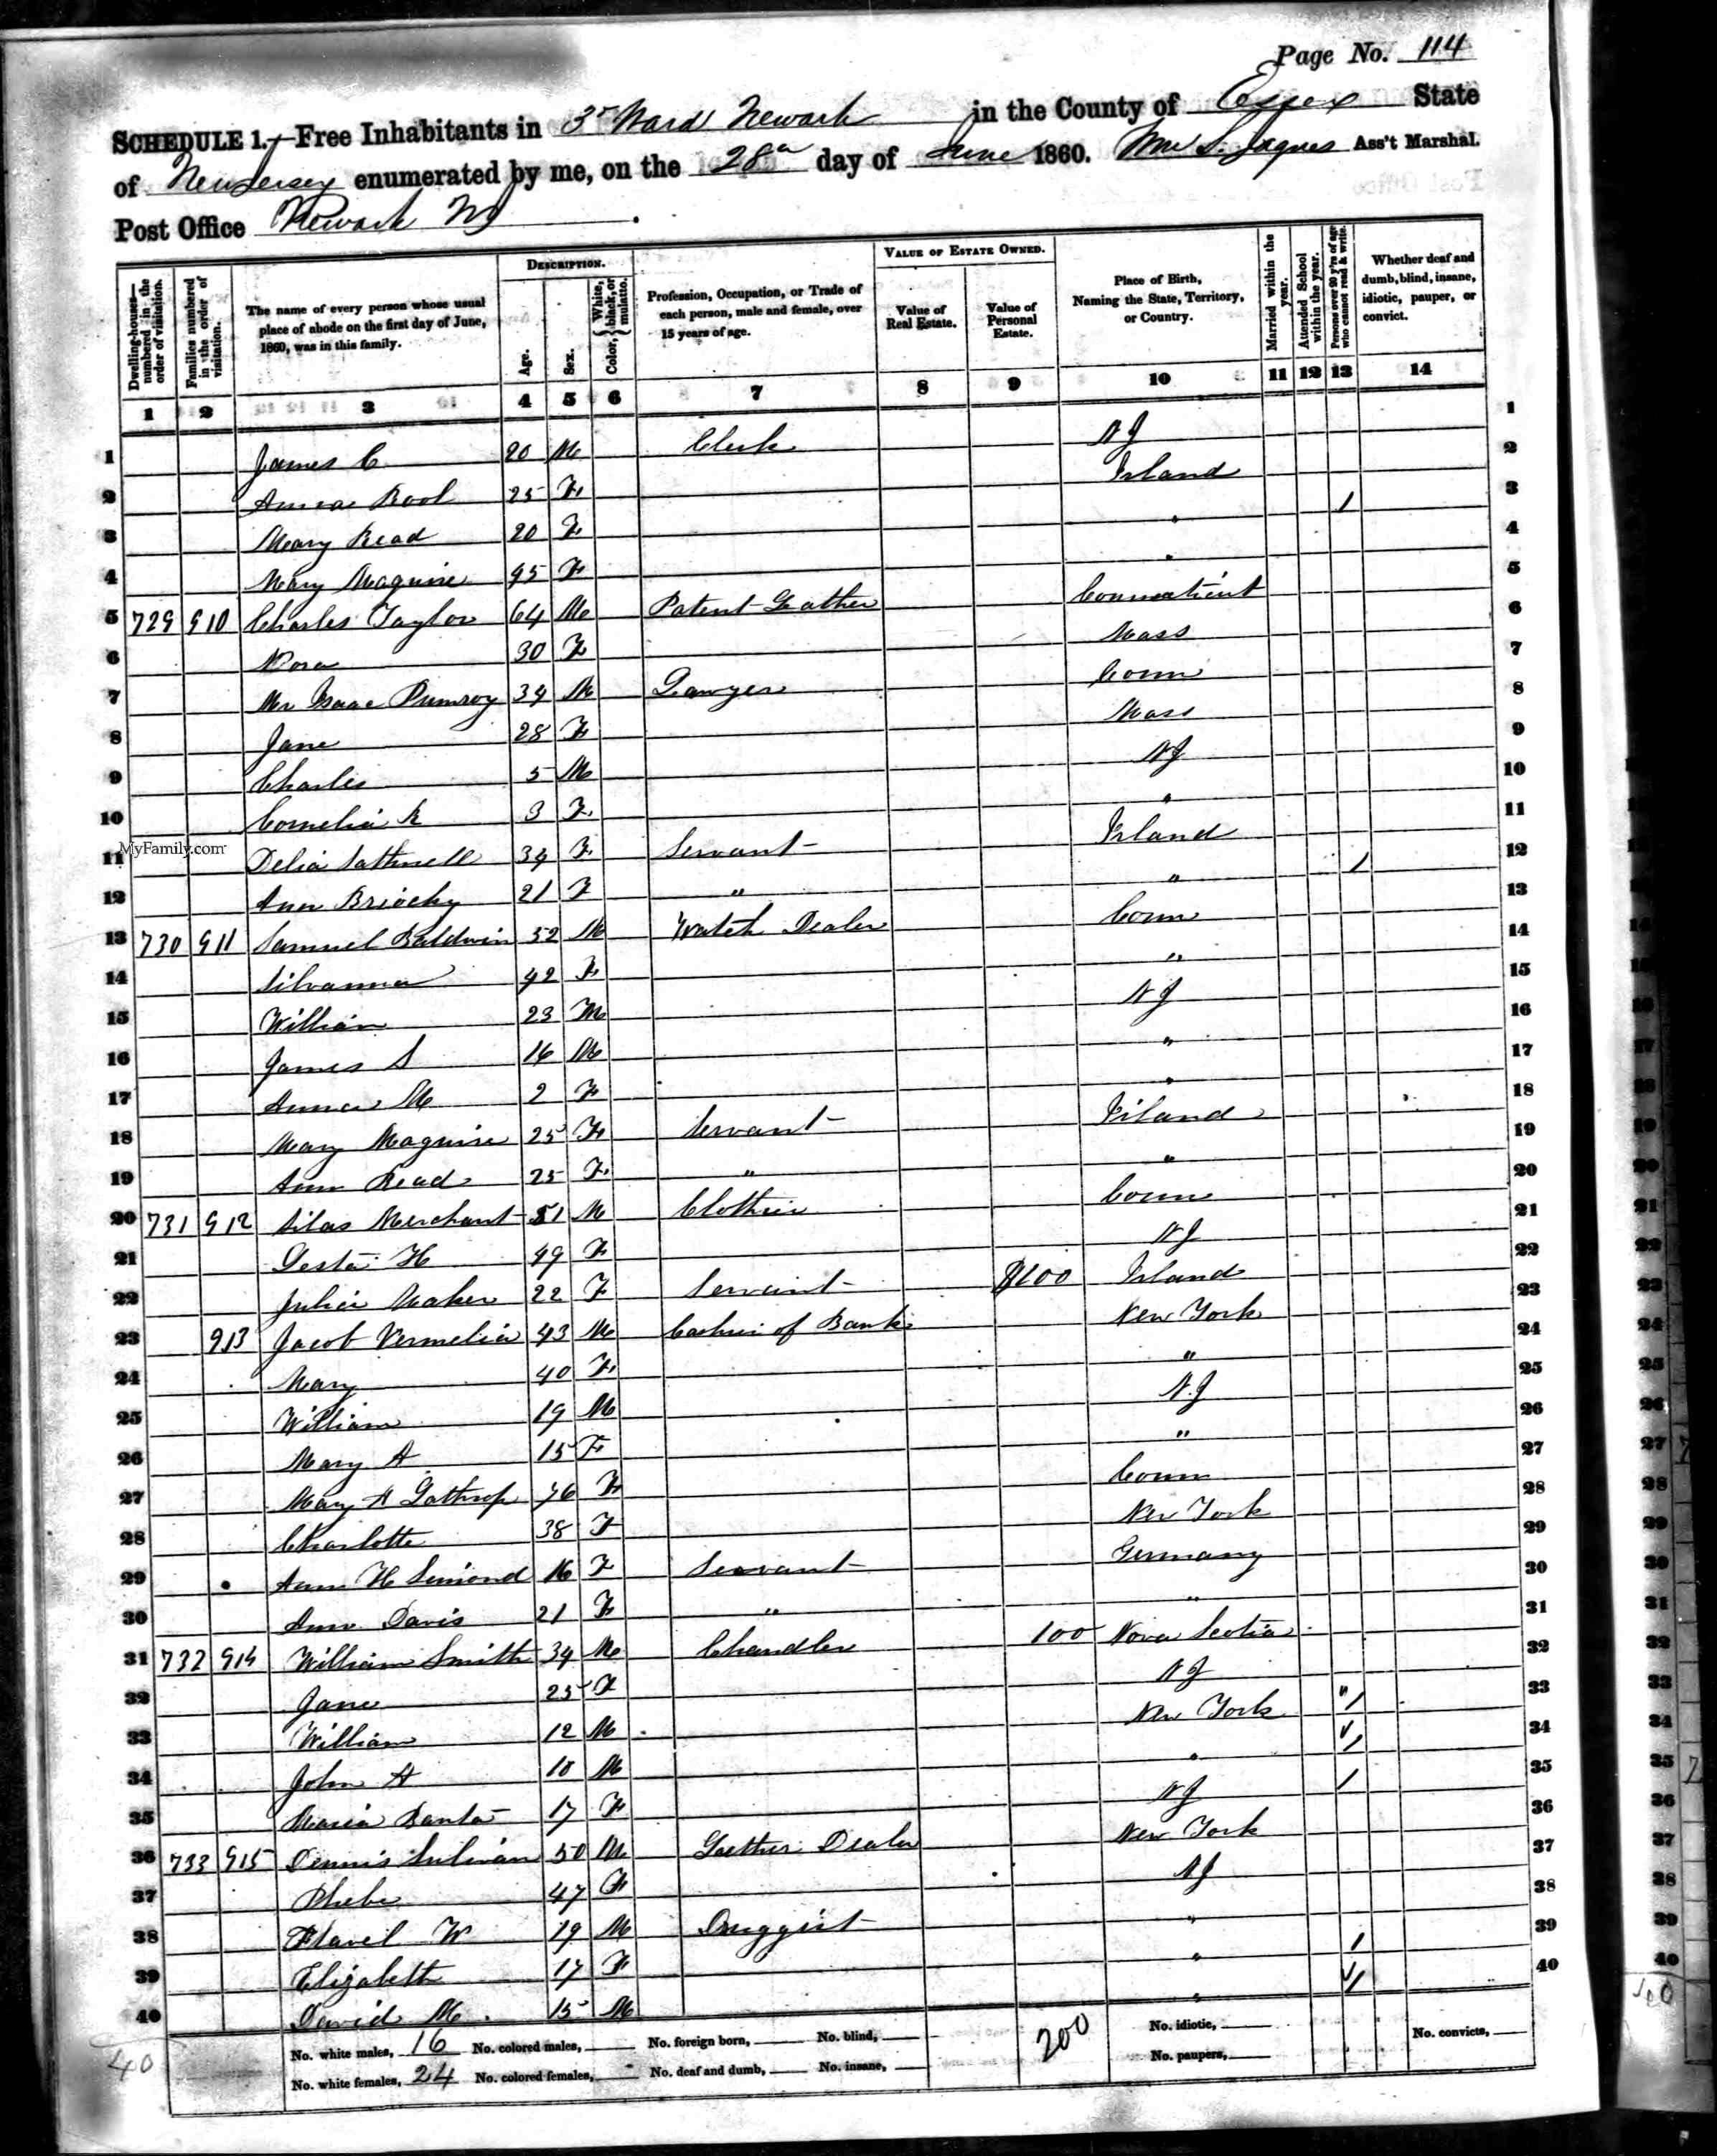 Page No. 114
SCHEDULE 1.—Free Inhabitants in 3r Ward Newark in the County of Essex State
of New Jersey enumerated by me, on the 28th day of June 1860. Wm S. Jaques Ass't Marshal.
Post Office Newark NJ
Dwelling-houses—numbered in the order of visitation.
Families numbered in the order of visitation.
The name of every person whose usual place of abode on the first day of June, 1860, was in this family.
DESCRIPTION.
Age.
Sex.
Color, { White, black, or mulatto.
Profession, Occupation, or Trade of each person, male and female, over 15 years of age.
VALUE OF ESTATE OWNED.
Value of Real Estate.
Value of Personal Estate.
Place of Birth, Naming the State, Territory, or Country.
Married within the year.
Attended School within the year.
Persons over 20 y'rs of age who cannot read & write.
Whether deaf and dumb, blind, insane, idiotic, pauper, or convict.
1 2 3 4 5 6 7 8 9 10 11 12 13 14
1 James C 20 M Clerk NJ 1
2 Anna Rool 25 F Irland 2
3 Mary Read 20 F " / 3
4 Mary Maguire 45 F " 4
5 729 910 Charles Taylor 64 M Patent Leather Connecticut 5
6 Nora 30 F Mass 6
7 Mr Isaac Pumroy 34 M Lawyer Conn 7
8 Jane 28 F Mass 8
9 Charles 5 M NJ 9
10 Cornelia R 3 F " 10
11 Delia 34 F Servant Irland 11
MyFamily.com
12 Ann 21 F " " / 12
13 730 911 Samuel Baldwin 52 M Watch Dealer Conn 13
14 Silvanna 42 F " 14
15 William 23 M NJ 15
16 James S 16 M " 16
17 Anna M 2 F " 17
18 Mary Maguire 25 F Servant Irland 18
19 Ann Read 25 F " " 19
20 731 912 Silas Merchant 51 M Clothier Conn 20
21 H 49 F NJ 21
22 Julia Maher 22 F Servant $100 Irland 22
23 913 Jacob Vermelia 43 M Cashier of Bank New York 23
24 Mary 40 F " 24
25 William 19 M N.J 25
26 Mary A 15 F " 26
27 Mary A Lathrop 76 F Conn 27
28 Charlotte 38 F New York 28
29 Ann H Simond 16 F Servant Germany 29
30 Ann Davis 21 F " " 30
31 732 914 William Smith 34 M Chandler 100 Nova Scotia 31
32 Jane 25 F NJ 32
33 William 12 M New York / 33
34 John A 10 M " / 34
35 Maria Banta 17 F NJ / 35
36 733 915 Dennis Sulivan 50 M Leather Dealer New York 36
37 Phebe 47 F NJ 37
38 Flavil W 19 M Druggist " 38
39 Elizabeth 17 F " / 39
40 David M 15 M " / 40
No. white males, 16 No. colored males, No. foreign born, No. blind, 200 No. idiotic, No. convicts,
No. white females, 24 No. colored females, No. deaf and dumb, No. insane, No. paupers,
40